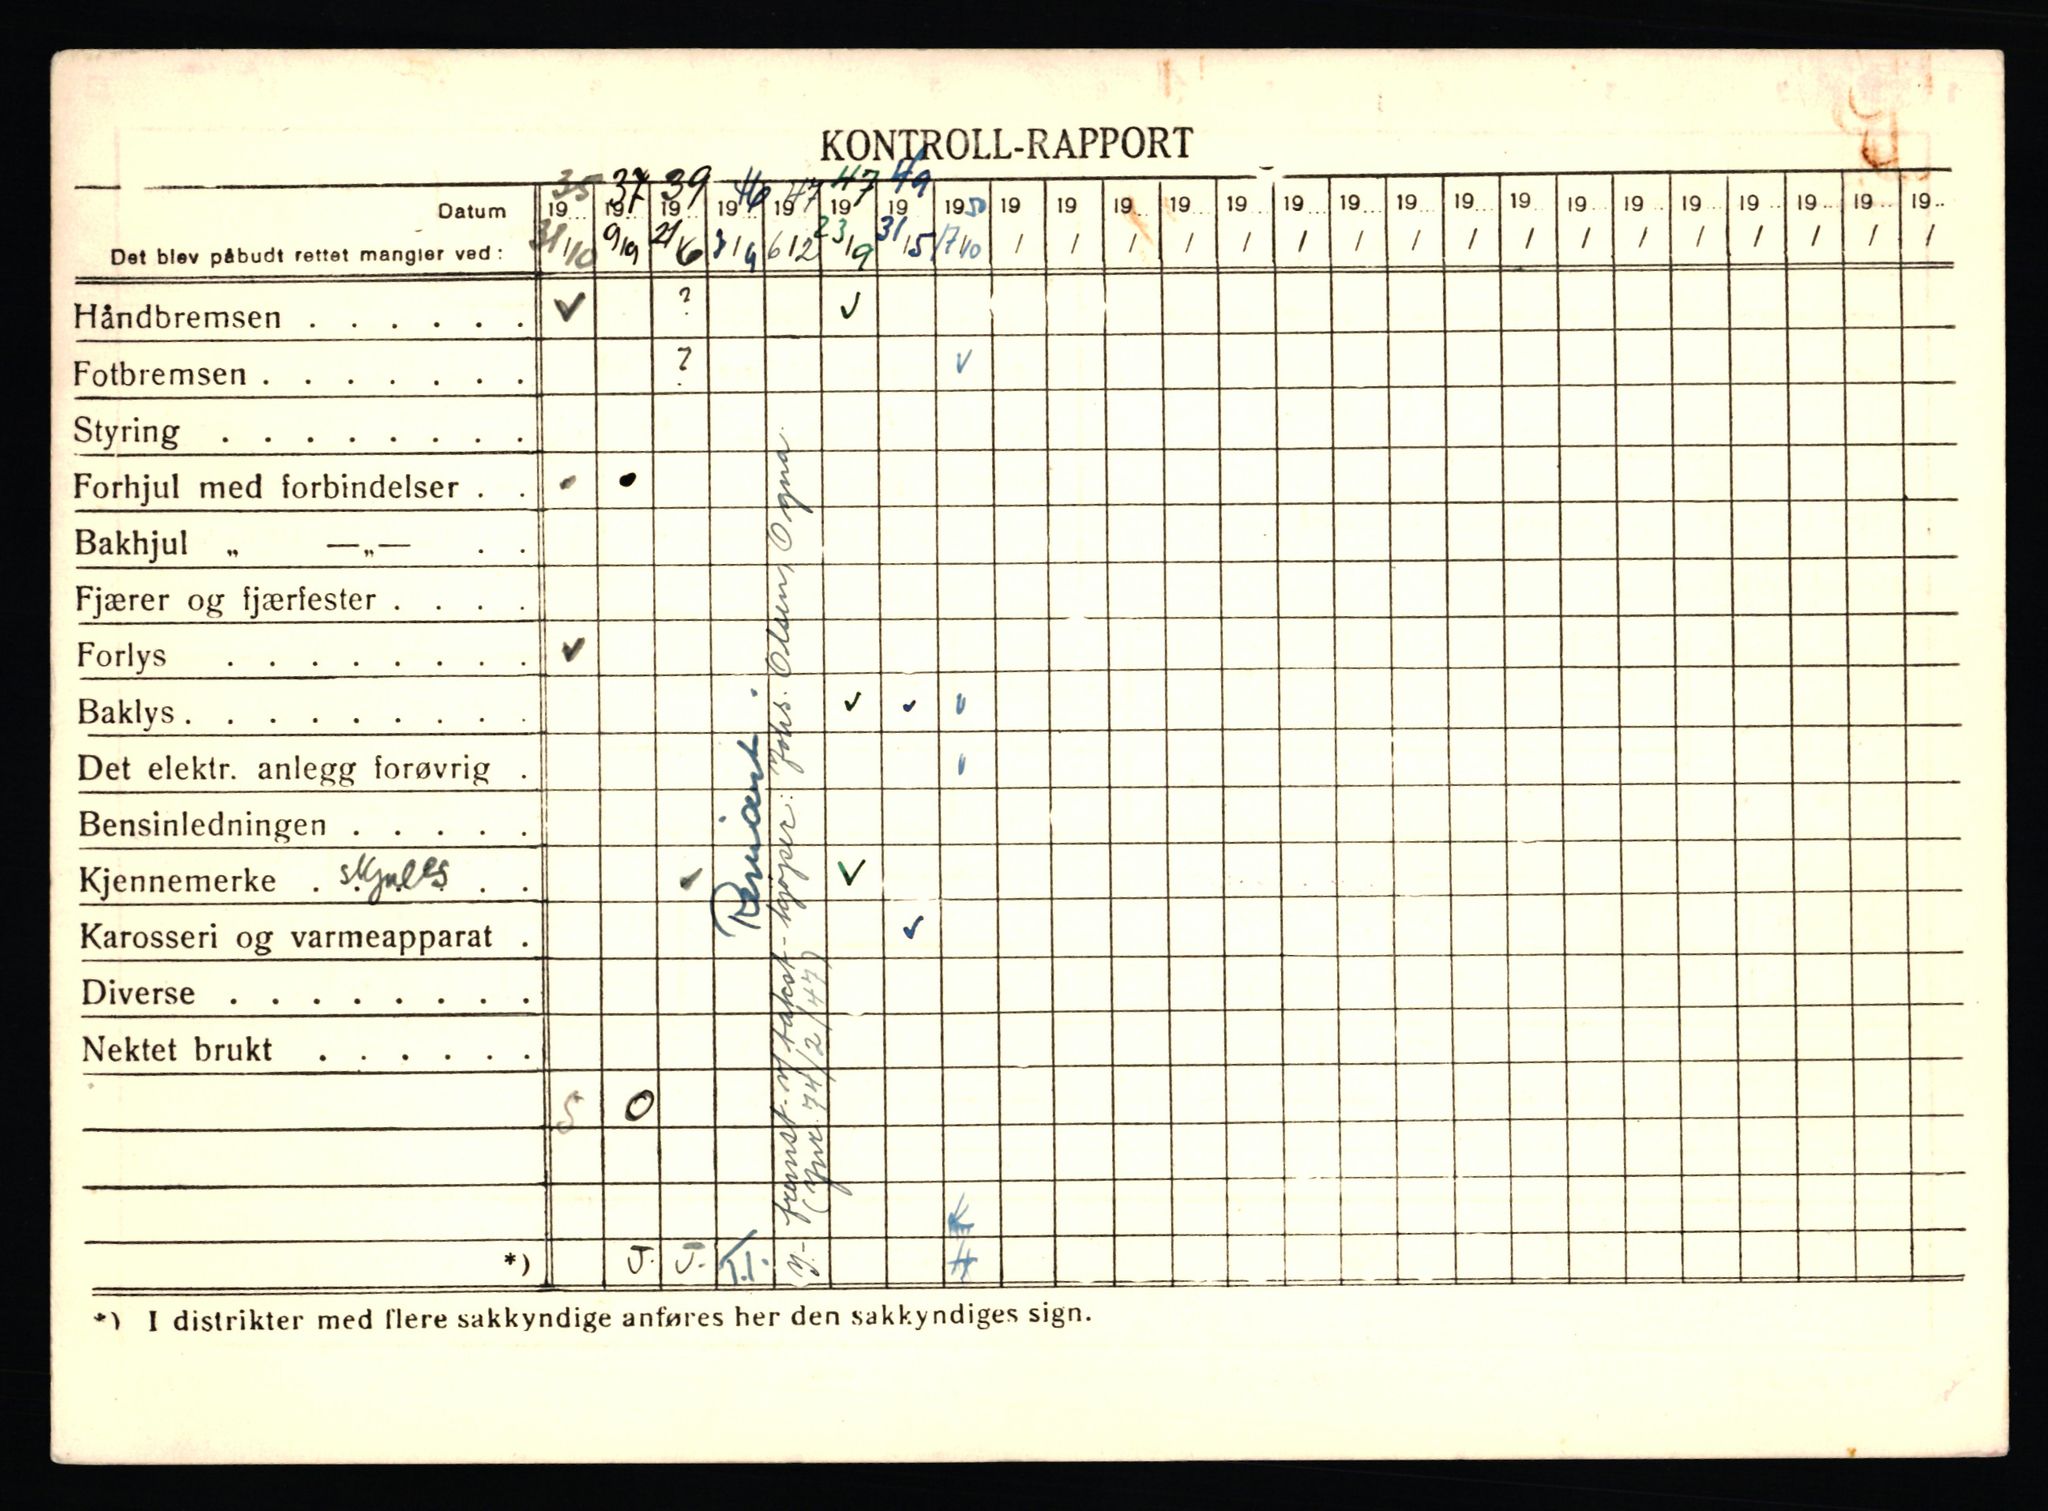 KONTROLL-RAPPORT
Datum 1935 1937 1939 1946 1947 1947 1949 1950 19 19 19 19 19 19 19 19 19 19 19 19 19 19 19 19 19
Det blev påbudt rettet mangler ved: 31/10 9/9 21/6 3/4 6/12 23/9 31/5 17/10 / / / / / / / / / / / / / / / / /
Håndbremsen . . . . . . ✓ ? ✓
Fotbremsen . . . . . . . ? ✓
Styring . . . . . . . .
Forhjul med forbindelser . .
Bakhjul „ —„— . .
Fjærer og fjærfester . . . .
Forlys . . . . . . . . ✓
Baklys . . . . . . . . . ✓ ✓ ✓
Det elektr. anlegg forøvrig . ✓
Bensinledningen . . . . .
Kjennemerke . skjules . . ✓ ✓
Karosseri og varmeapparat . ✓
Diverse . . . . . . . .
Nektet brukt . . . . . .
S O
*) J. J. T.T.
takst - kjøper: Johs. Olsen, Ogna.
74/2/47)
*) I distrikter med flere sakkyndige anføres her den sakkyndiges sign.